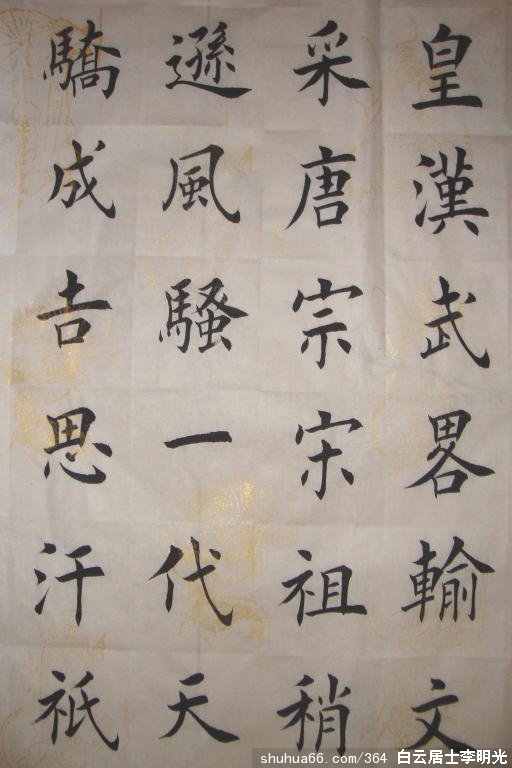 皇漢武畧輸文
采唐宗宋祖稍
遜風騷一代天
驕成吉思汗祇
shuhua66.com/364 白云居士李明光